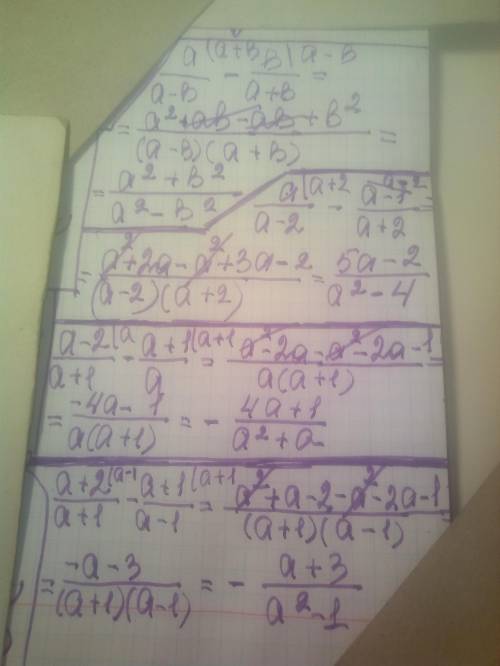 a (a+в в| a-в
a-в - a+в =
= a²+ab-ab+в² / (a-в)(a+в) =
= a²+в² / a²-в²
a|(a+2 / a-2 - a-1 |a-2 / a+2 =
= a²+2a-a²+3a-2 / (a-2)(a+2) = 5a-2 / a²-4
a-2|(a / a+1 - a+1|(a+1 / a = a²-2a-a²-2a-1 / a(a+1) =
= -4a-1 / a(a+1) = - 4a+1 / a²+a
a+2|(a-1 / a+1 - a+1|(a+1 / a-1 = a²+a-2-a²-2a-1 / (a+1)(a-1) =
= -a-3 / (a+1)(a-1) = - a+3 / a²-1